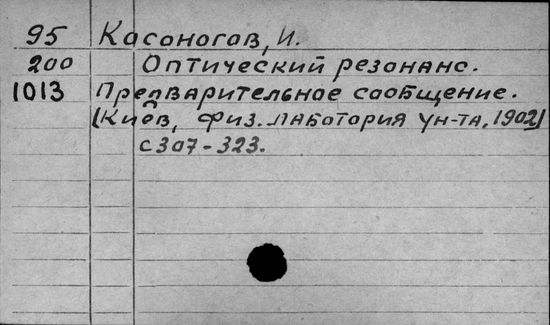 95 Касоногов, И.
200 Оптический резонанс.
1013 Предварительное сообщение.
[Киев, физ. лаботория ун-та, 1902]
с 307-323.